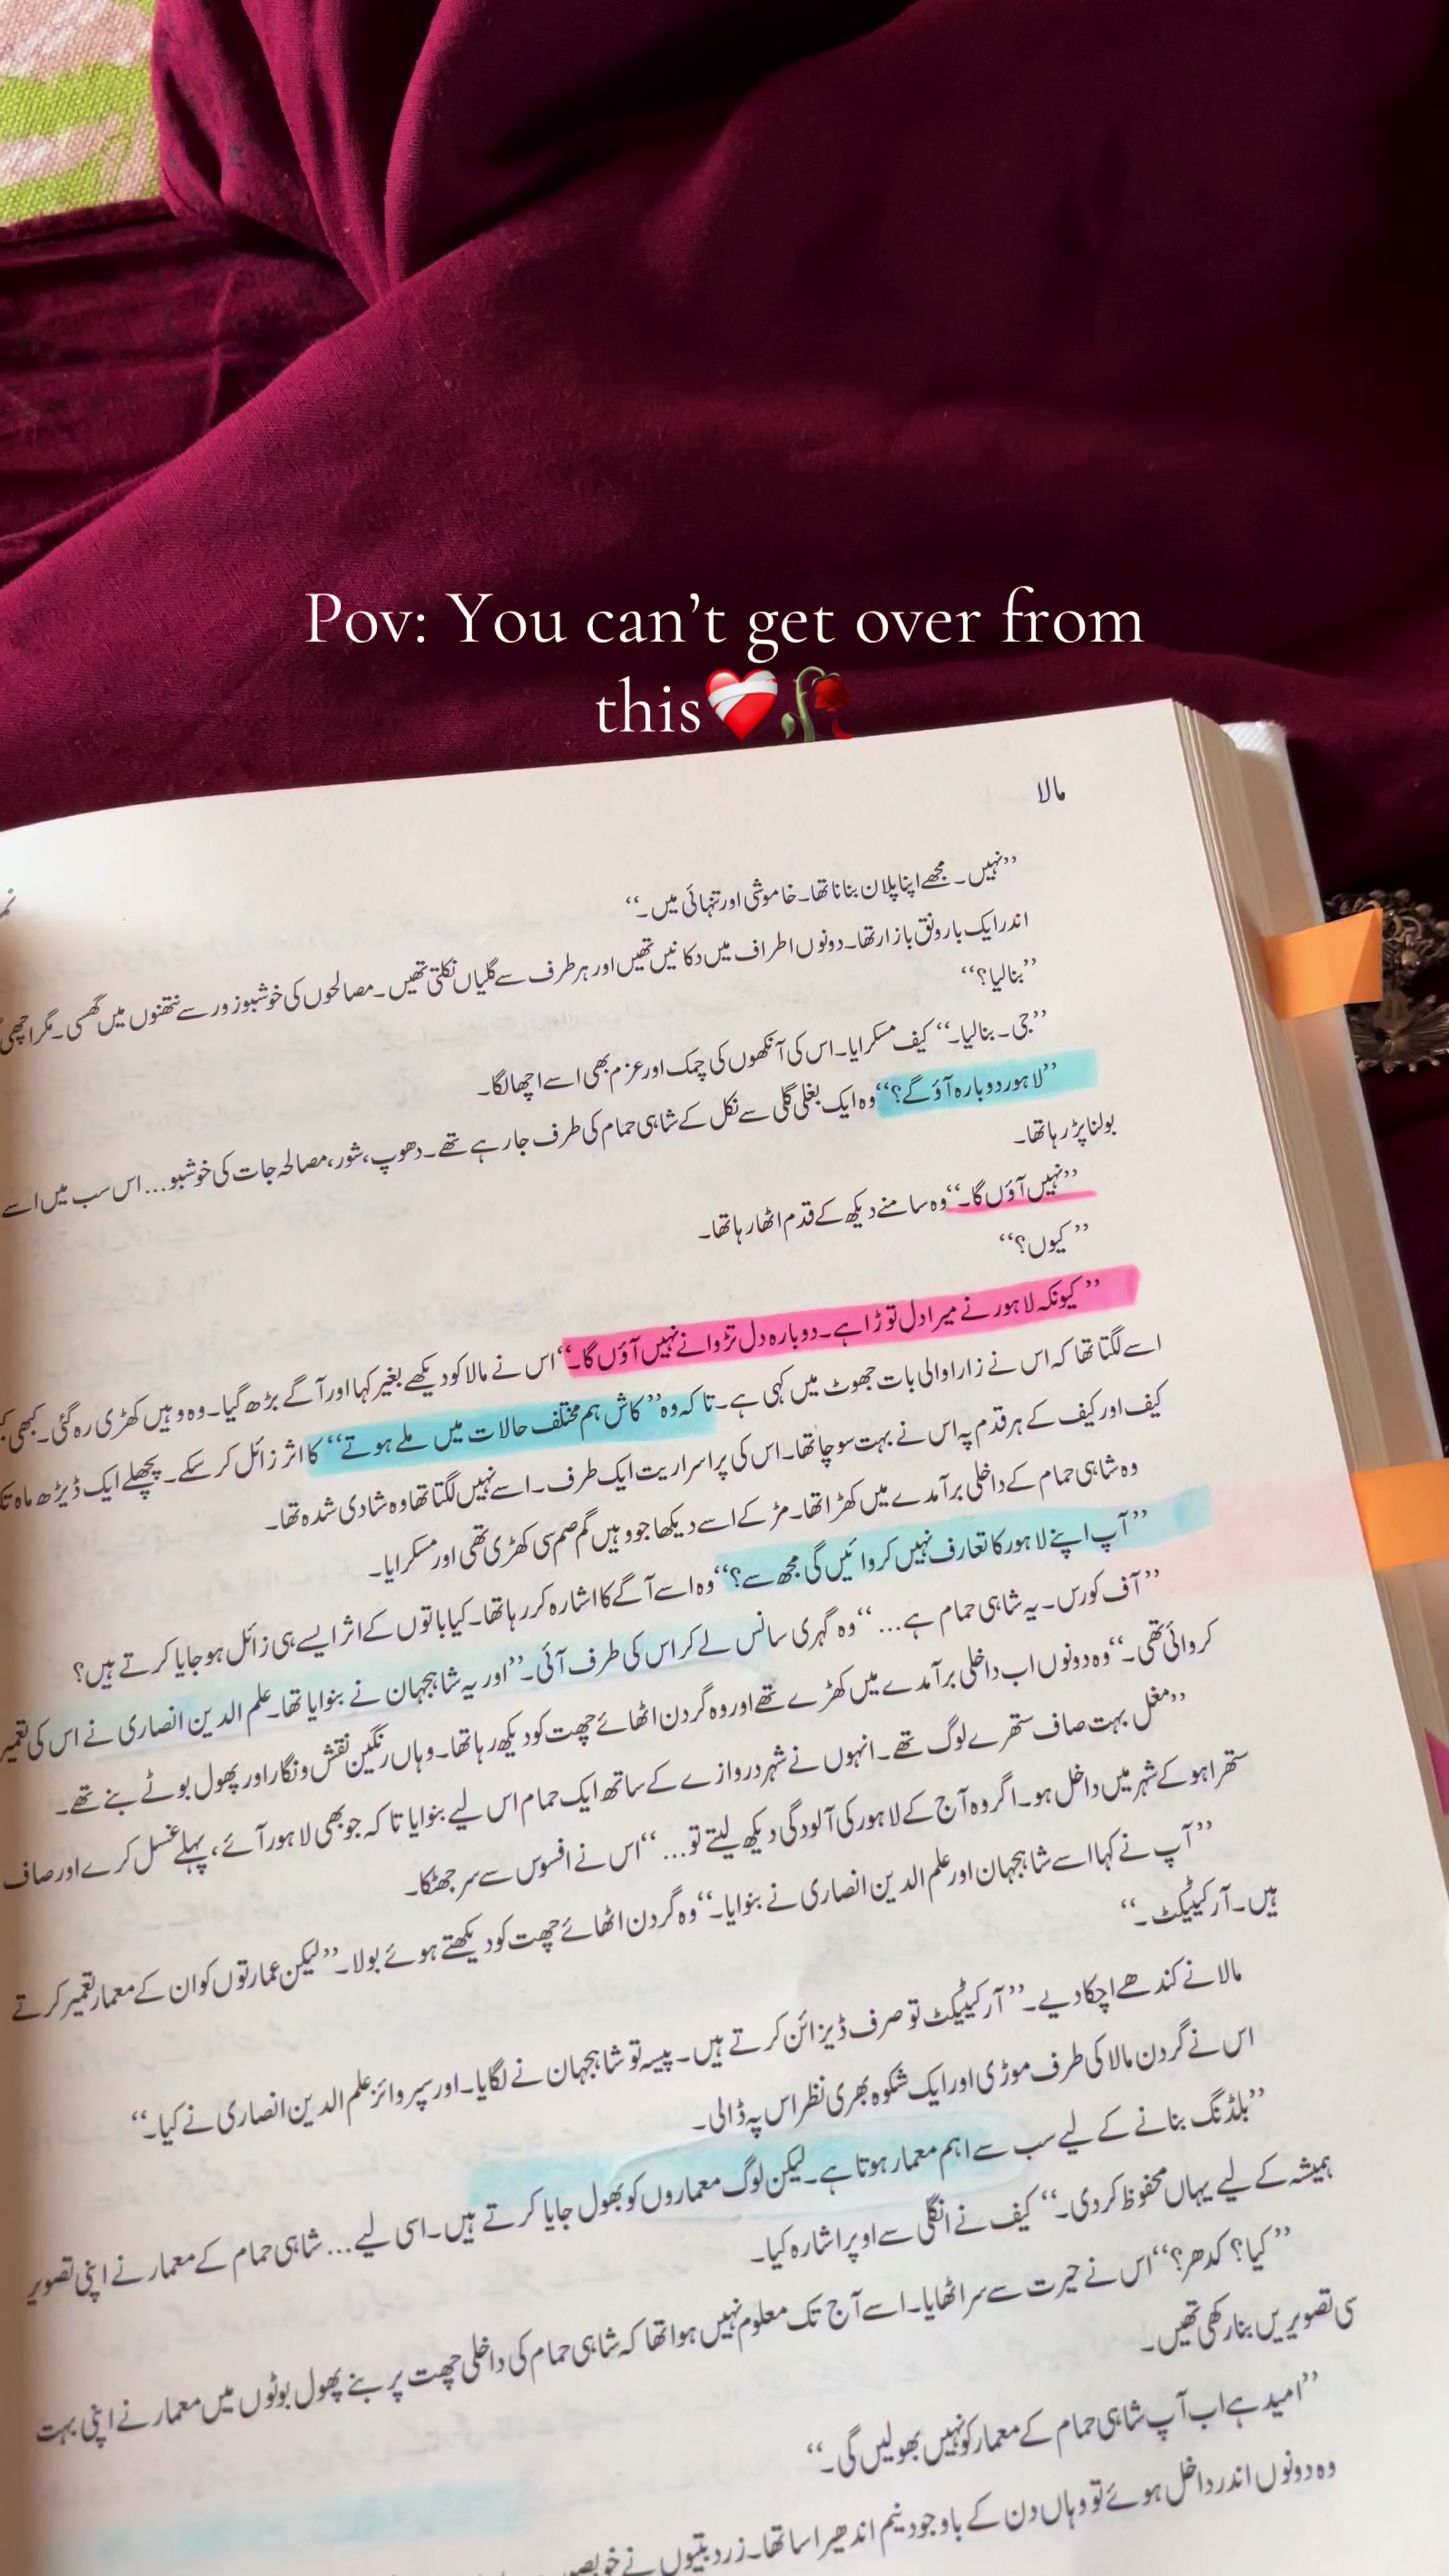 Pov: You can’t get over from
this❤️‍🩹🥀
مالا
’’نہیں۔ مجھے اپنا پلان بنانا تھا۔ خاموشی اور تنہائی میں۔‘‘
اندر ایک بارونق بازار تھا۔ دونوں اطراف میں دکانیں تھیں اور ہر طرف سے گلیاں نکلتی تھیں۔ مصالحوں کی خوشبو زور سے نتھنوں میں گھسی۔ مگر اچھی
’’بنا لیا؟‘‘
’’جی۔ بنا لیا۔‘‘ کیف مسکرایا۔ اس کی آنکھوں کی چمک اور عزم بھی اسے اچھا لگا۔
’’لاہور دوبارہ آؤ گے؟‘‘ وہ ایک بغلی گلی سے نکل کے شاہی حمام کی طرف جا رہے تھے۔ دھوپ، شور، مصالحہ جات کی خوشبو... اس سب میں اسے
بولنا پڑ رہا تھا۔
’’نہیں آؤں گا۔‘‘ وہ سامنے دیکھ کے قدم اٹھا رہا تھا۔
’’کیوں؟‘‘
’’کیونکہ لاہور نے میرا دل توڑا ہے۔ دوبارہ دل تڑوانے نہیں آؤں گا۔‘‘ اس نے مالا کو دیکھے بغیر کہا اور آگے بڑھ گیا۔ وہ وہیں کھڑی رہ گئی۔ کبھی
اسے لگتا تھا کہ اس نے زارا والی بات جھوٹ میں کہی ہے۔ تا کہ وہ ’’کاش ہم مختلف حالات میں ملے ہوتے‘‘ کا اثر زائل کر سکے۔ پچھلے ایک ڈیڑھ ماہ
کیف اور کیف کے ہر قدم پہ اس نے بہت سوچا تھا۔ اس کی پراسراریت ایک طرف۔ اسے نہیں لگتا تھا وہ شادی شدہ تھا۔
وہ شاہی حمام کے داخلی برآمدے میں کھڑا تھا۔ مڑ کے اسے دیکھا جو وہیں گم صم سی کھڑی تھی اور مسکرایا۔
’’آپ اپنے لاہور کا تعارف نہیں کروائیں گی مجھ سے؟‘‘ وہ اسے آگے کا اشارہ کر رہا تھا۔ کیا باتوں کے اثر ایسے ہی زائل ہو جایا کرتے ہیں؟
’’آف کورس۔ یہ شاہی حمام ہے...‘‘ وہ گہری سانس لے کر اس کی طرف آئی۔ ’’اور یہ شاہجہان نے بنوایا تھا۔ علم الدین انصاری نے اس کی تعمیر
کروائی تھی۔‘‘ وہ دونوں اب داخلی برآمدے میں کھڑے تھے اور وہ گردن اٹھائے چھت کو دیکھ رہا تھا۔ وہاں رنگین نقش و نگار اور پھول بوٹے بنے تھے۔
’’مغل بہت صاف ستھرے لوگ تھے۔ انہوں نے شہر دروازے کے ساتھ ایک حمام اس لیے بنوایا تا کہ جو بھی لاہور آئے، پہلے غسل کرے اور صاف
ستھرا ہو کے شہر میں داخل ہو۔ اگر وہ آج کے لاہور کی آلودگی دیکھ لیتے تو...‘‘ اس نے افسوس سے سر جھٹکا۔
’’آپ نے کہا اسے شاہجہان اور علم الدین انصاری نے بنوایا۔‘‘ وہ گردن اٹھائے چھت کو دیکھتے ہوئے بولا۔ ’’لیکن عمارتوں کو ان کے معمار تعمیر کرتے
ہیں۔ آرکیٹیکٹ۔‘‘
مالا نے کندھے اچکا دیے۔ ’’آرکیٹیکٹ تو صرف ڈیزائن کرتے ہیں۔ پیسہ تو شاہجہان نے لگایا۔ اور سپروائز علم الدین انصاری نے کیا۔‘‘
اس نے گردن مالا کی طرف موڑی اور ایک شکوہ بھری نظر اس پہ ڈالی۔
’’بلڈنگ بنانے کے لیے سب سے اہم معمار ہوتا ہے۔ لیکن لوگ معماروں کو بھول جایا کرتے ہیں۔ اسی لیے... شاہی حمام کے معمار نے اپنی تصویر
ہمیشہ کے لیے یہاں محفوظ کر دی۔‘‘ کیف نے انگلی سے اوپر اشارہ کیا۔
’’کیا؟ کدھر؟‘‘ اس نے حیرت سے سر اٹھایا۔ اسے آج تک معلوم نہیں ہوا تھا کہ شاہی حمام کی داخلی چھت پر بنے پھول بوٹوں میں معمار نے اپنی بہت
سی تصویریں بنا رکھی تھیں۔
’’امید ہے اب آپ شاہی حمام کے معمار کو نہیں بھولیں گی۔‘‘
وہ دونوں اندر داخل ہوئے تو وہاں دن کے باوجود نیم اندھیرا سا تھا۔ زرد بتیوں نے